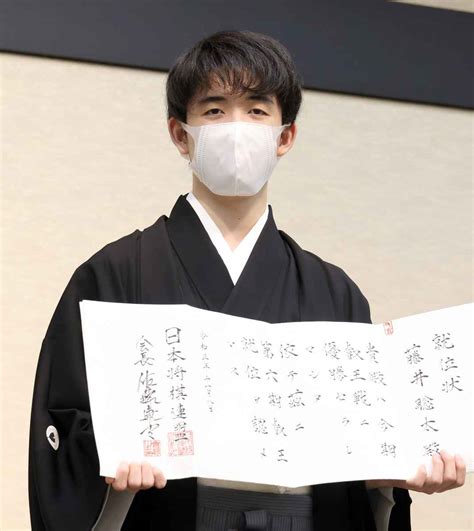 就位状
藤井聡太殿
貴殿ハ今期
叡王戦ニ
優勝セラレ
マシタ
依テ茲ニ
第六期叡王
就位ヲ認メ
マス
令和三年
日本将棋連盟
会長 佐藤康光